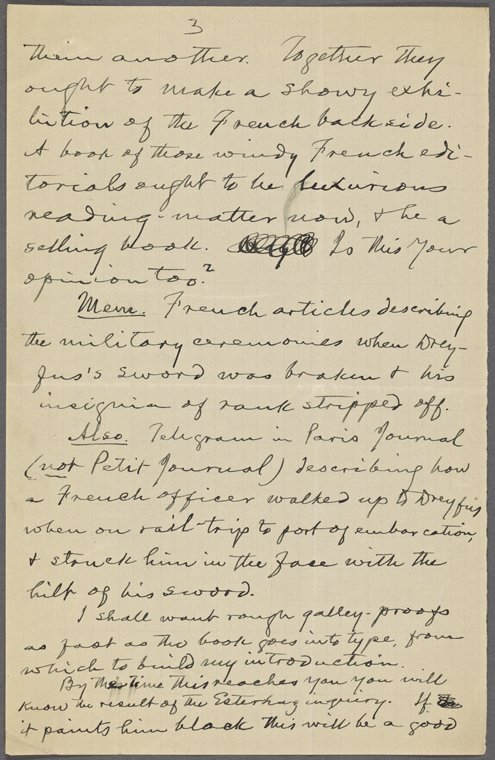 3
them another. Together they
ought to make a showy exhi-
bition of the French backside.
A book of those windy French edi-
torials ought to be luxurious
reading-matter now, & be a
selling book. Is this your
opinion too?
Mem. French articles describing
the military ceremonies when Drey-
fus's sword was broken & his
insignia of rank stripped off.
Also. Telegram in Paris Journal
(not Petit Journal) describing how
a French officer walked up to Dreyfus
when on rail-trip to port of embarcation,
& struck him in the face with the
hilt of his sword.
I shall want rough galley-proofs
as fast as the book goes into type, from
which to build my introduction.
By the time this reaches you you will
know the result of the Esterhazy inquiry. If
it paints him black this will be a good